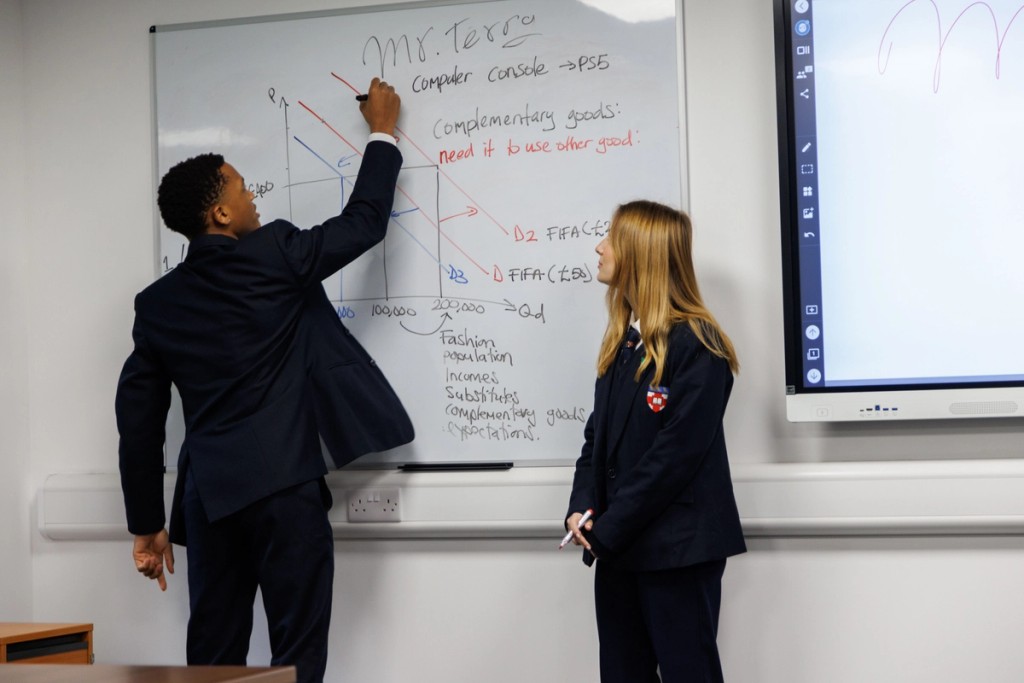 Mr. Terry
Computer Console → PS5
P
Complementary goods:
need it to use other good:
D2 FIFA (£2
D FIFA (£50)
D3
100,000 200,000 Qd
Fashion
population
Incomes
Substitutes
Complementary goods
expectations.